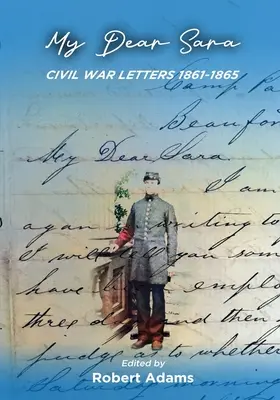 My Dear Sara
CIVIL WAR LETTERS 1861-1865
Camp
Beaufor
My Dear Sara
I am
again
writing to
I will tell you som
have
emplo
three d
and then
judge as to whethe
Saturday morning
Edited by
Robert Adams